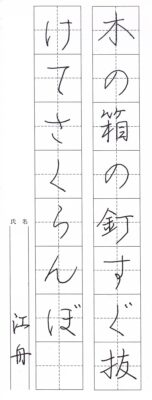 木の箱の釘すぐ抜
けてさくらんぼ
氏名 江舟